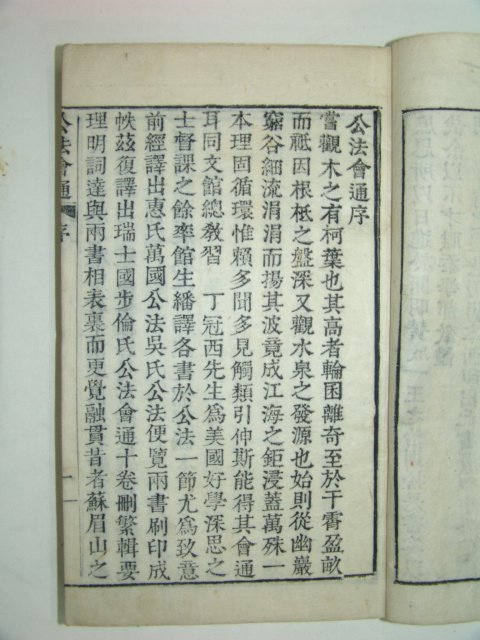 公法會通序
嘗觀木之有柯葉也其高者輪囷離奇至於干霄盈畝
而祗因根柢之盤深又觀水泉之發源也始則從幽巖
窮谷細流涓涓而揚其波竟成江海之鉅浸蓋萬殊一
本理固循環惟賴多聞多見觸類引伸斯能得其會通
耳同文館總教習 丁冠西先生為美國好學深思之
士督課之餘率館生繙譯各書於公法一節尤為致意
前經譯出惠氏萬國公法吳氏公法便覽兩書刷印成
帙茲復譯出瑞士國步倫氏公法會通十卷刪繁輯要
理明詞達與兩書相表裏而更覺融貫昔者蘇眉山之
公法會通 序 一